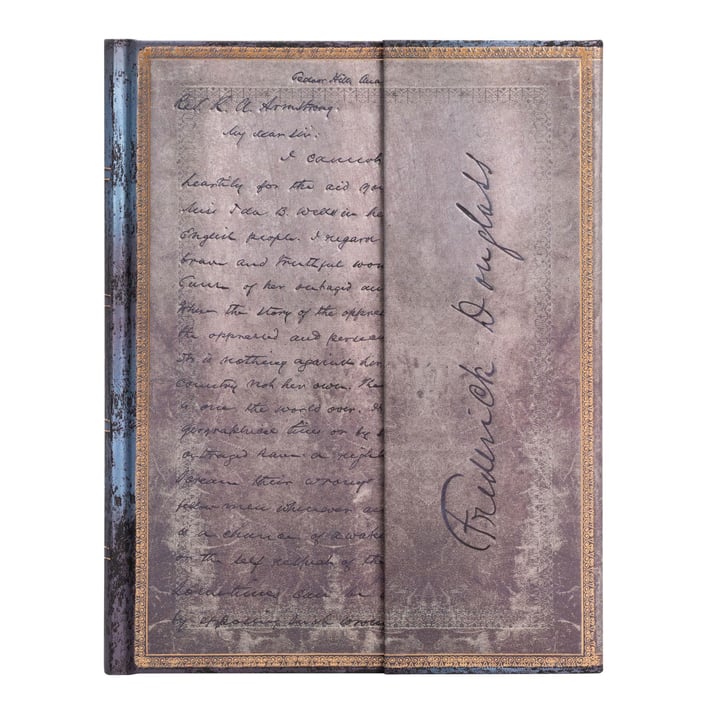 Cedar Hill Ana
Rev. R. A. Armstrong.
My dear Sir:
I cannot
heartily for the aid you
Miss Ida B. Wells in he
English people. I regard
brave and truthful wom
Cause of her outraged an
When the story of the oppres
the oppressed and persec
It is nothing against her
Country not her own. The
is one the world over.
geographical lines or by
outraged have a right
scream their wrongs
fellow men wherever
is a chance of awake
the self respect of the
sometimes can be
by exposing such wrong
Frederick Douglass